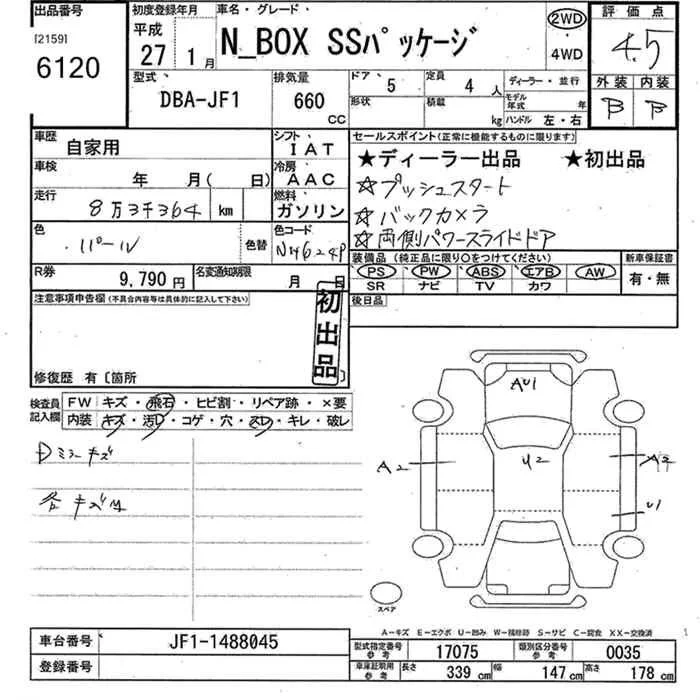 出品番号
[2159]
6120
初度登録年月
平成
27 1月
車名・グレード
N_BOX SSパッケージ
2WD
・
4WD
評価点
4.5
外装 内装
B B
型式
DBA-JF1
排気量
660
CC
ドア 5
定員 4 人
形状
積載 kg
ディーラー・並行
モデル年式 年
ハンドル 左・右
車歴
自家用
シフト
IAT
車検
年 月( 日)
冷房
AAC
走行
8万3千364 km
燃料
ガソリン
色
パール
色替
色コード
NH624P
R券
9,790円
名変通知期限
月 日
セールスポイント(正常に機能するものに限ります)
★ディーラー出品 ★初出品
☆プッシュスタート
☆バックカメラ
☆両側パワースライドドア
装備品(純正品に限り○をつけてください)
PS PW ABS エアB AW
SR ナビ TV カワ
新車保証書
有・無
後日品
注意事項申告欄(不具合内容等は具体的に記入して下さい)
初出品
修復歴 有〔箇所
検査員
記入欄
FW キズ・飛石・ヒビ割・リペア跡・×要
内装 キズ・汚D・コゲ・穴・スレ・キレ・破レ
Dミラーキズ
各キズ凹
AU1
A2
U2
A2
U1
スペア
A-キズ E-エクボ U-凹み W-補修跡 S-サビ C-腐食 XX-交換済
1
車台番号
JF1-1488045
登録番号
型式指定番号
参考
17075
類別区分番号
参考
0035
車庫証明用
参考
長さ 339 cm 幅 147 cm 高さ 178 cm